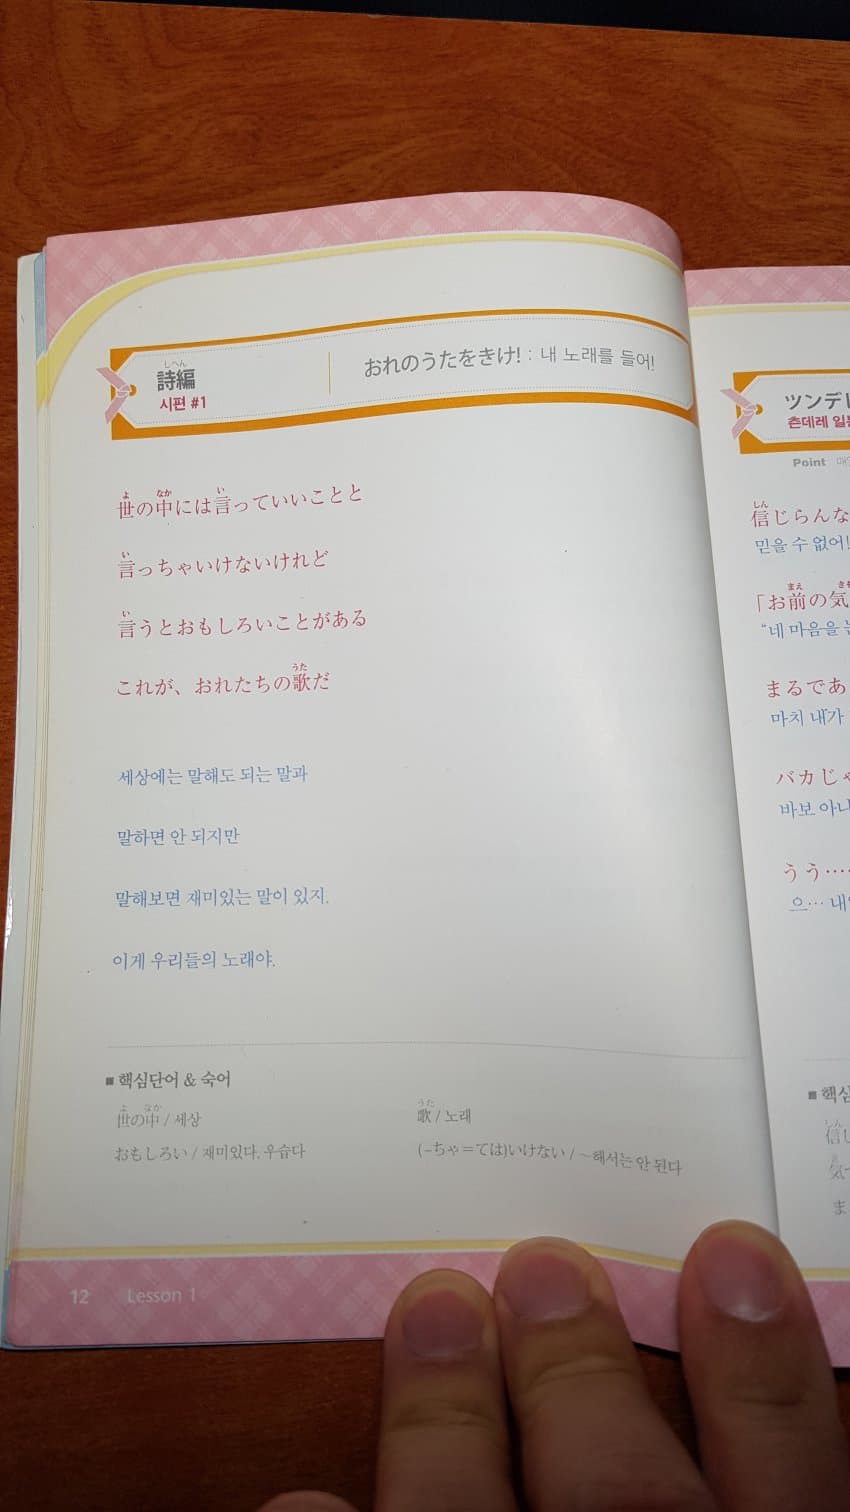 しへん
詩編
시편 #1
おれのうたをきけ! : 내 노래를 들어!
よ なか い
世の中には言っていいことと
い
言っちゃいけないけれど
い
言うとおもしろいことがある
うた
これが、おれたちの歌だ
세상에는 말해도 되는 말과
말하면 안 되지만
말해보면 재미있는 말이 있지.
이게 우리들의 노래야.
■ 핵심단어 & 숙어
よ なか
世の中 / 세상
うた
歌 / 노래
おもしろい / 재미있다. 우습다
(-ちゃ=ては)いけない / ~해서는 안 된다
12 Lesson 1
ツンデレ
츤데레 일
Point
しん
信じらんな
믿을 수 없어!
まえ
「お前の気
“네 마음을
まるであ
마치 내가
バカじゃ
바보 아니
うう…
으… 내
■ 핵심
しん
信じ
気
ま